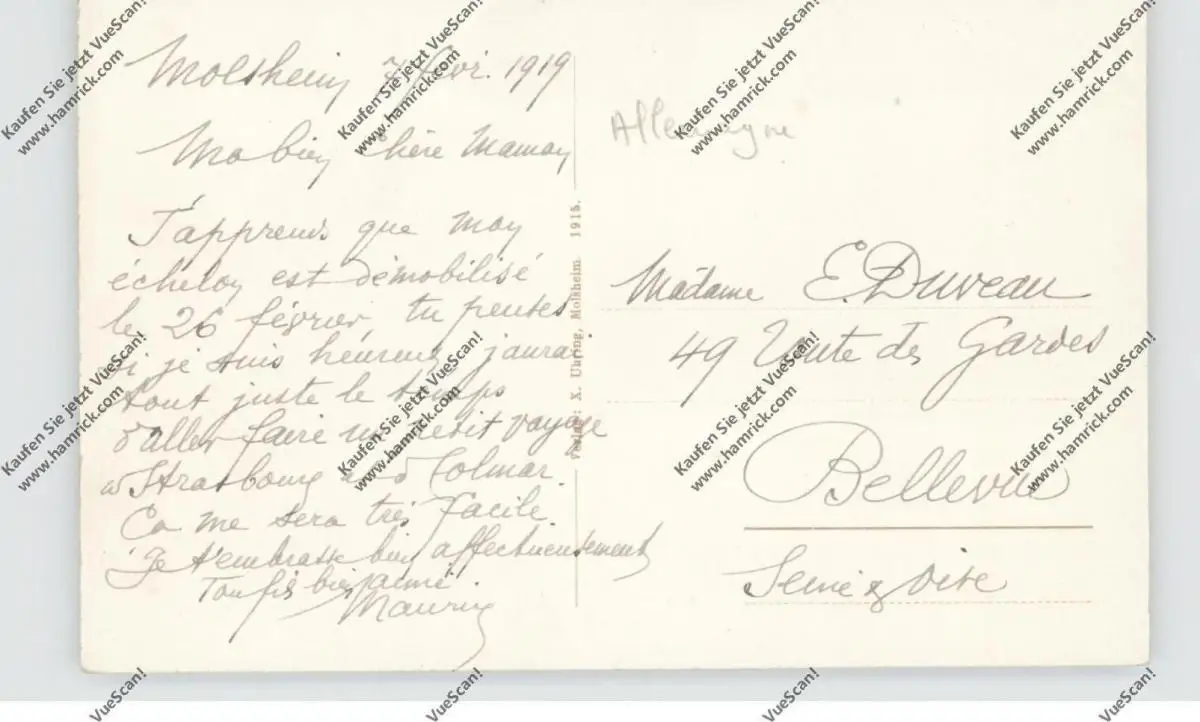 Molsheim 7 févr. 1919
Ma bien chère Maman
J'apprends que mon
échelon est démobilisé
le 26 février, tu penses
si je suis héureux, j'aurai
tout juste le temps
d'aller faire un petit voyage
a Strasbourg Colmar.
Ca me sera très facile.
Je t'embrasse bien affectueusement
Ton fils bien aimé.
Maurice
Verlag: X. Uhring, Molsheim. 1915.
Allemagne
Madame E. Duveau
49 Route des Gardes
Bellevue
Seine & Oise
Kaufen Sie jetzt VueScan!
www.hamrick.com